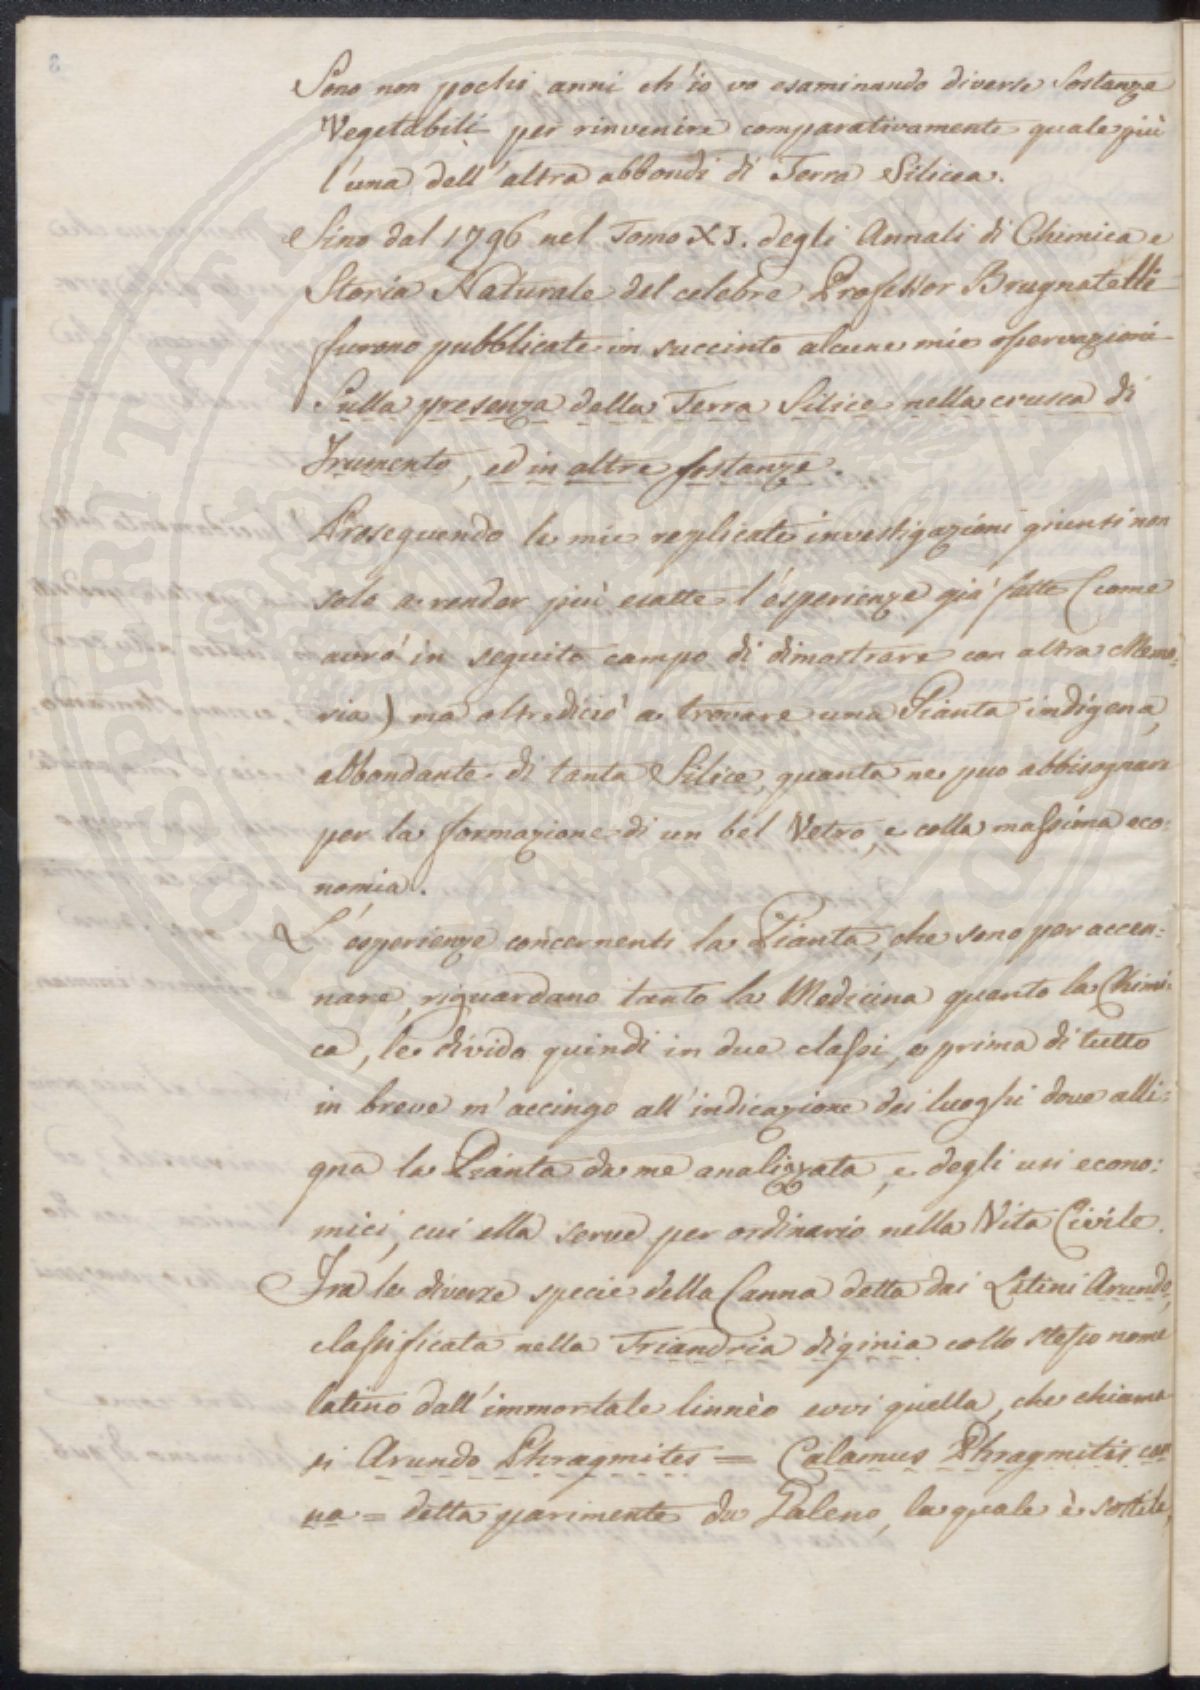 Sono non pochi anni ch'io vo esaminando diverse Sostanze
Vegetabili per rinvenire comparativamente quale più
l'una dell'altra abbondi di Terra Silicea.
Sino dal 1796 nel Tomo XI. degli Annali di Chimica e
Storia Naturale del celebre Professor Brugnatelli
furono pubblicate in succinto alcune mie osservazioni
Sulla presenza della Terra Silice nella crusca di
Frumento, ed in altre sostanze.
Proseguendo le mie replicate investigazioni giunsi non
solo a render più esatte l'esperienze già fatte (come
avrò in seguito campo di dimostrare con altra Memo:
ria) ma oltrediciò a trovare una Pianta indigena,
abbondante di tanta Silice, quanta ne può abbisognare
per la formazione di un bel Vetro, e colla massima eco:
nomia.
L'esperienze concernenti la Pianta, che sono per accen:
nare, riguardano tanto la Medicina quanto la Chimi:
ca, le divido quindi in due classi, e prima di tutto
in breve m'accingo all'indicazione dei luoghi dove alli:
gna la Pianta da me analizzata, e degli usi econo:
mici, cui ella serve per ordinario nella Vita Civile.
Fra le diverse specie della Canna detta dai Latini Arundo,
classificata nella Triandria diginia collo stesso nome
latino dall'immortale linnèo evvi quella, che chiama
si Arundo Phragmites = Calamus Phragmitis
= detta parimente da Galeno, la quale è sottile,
PROSPERITATI